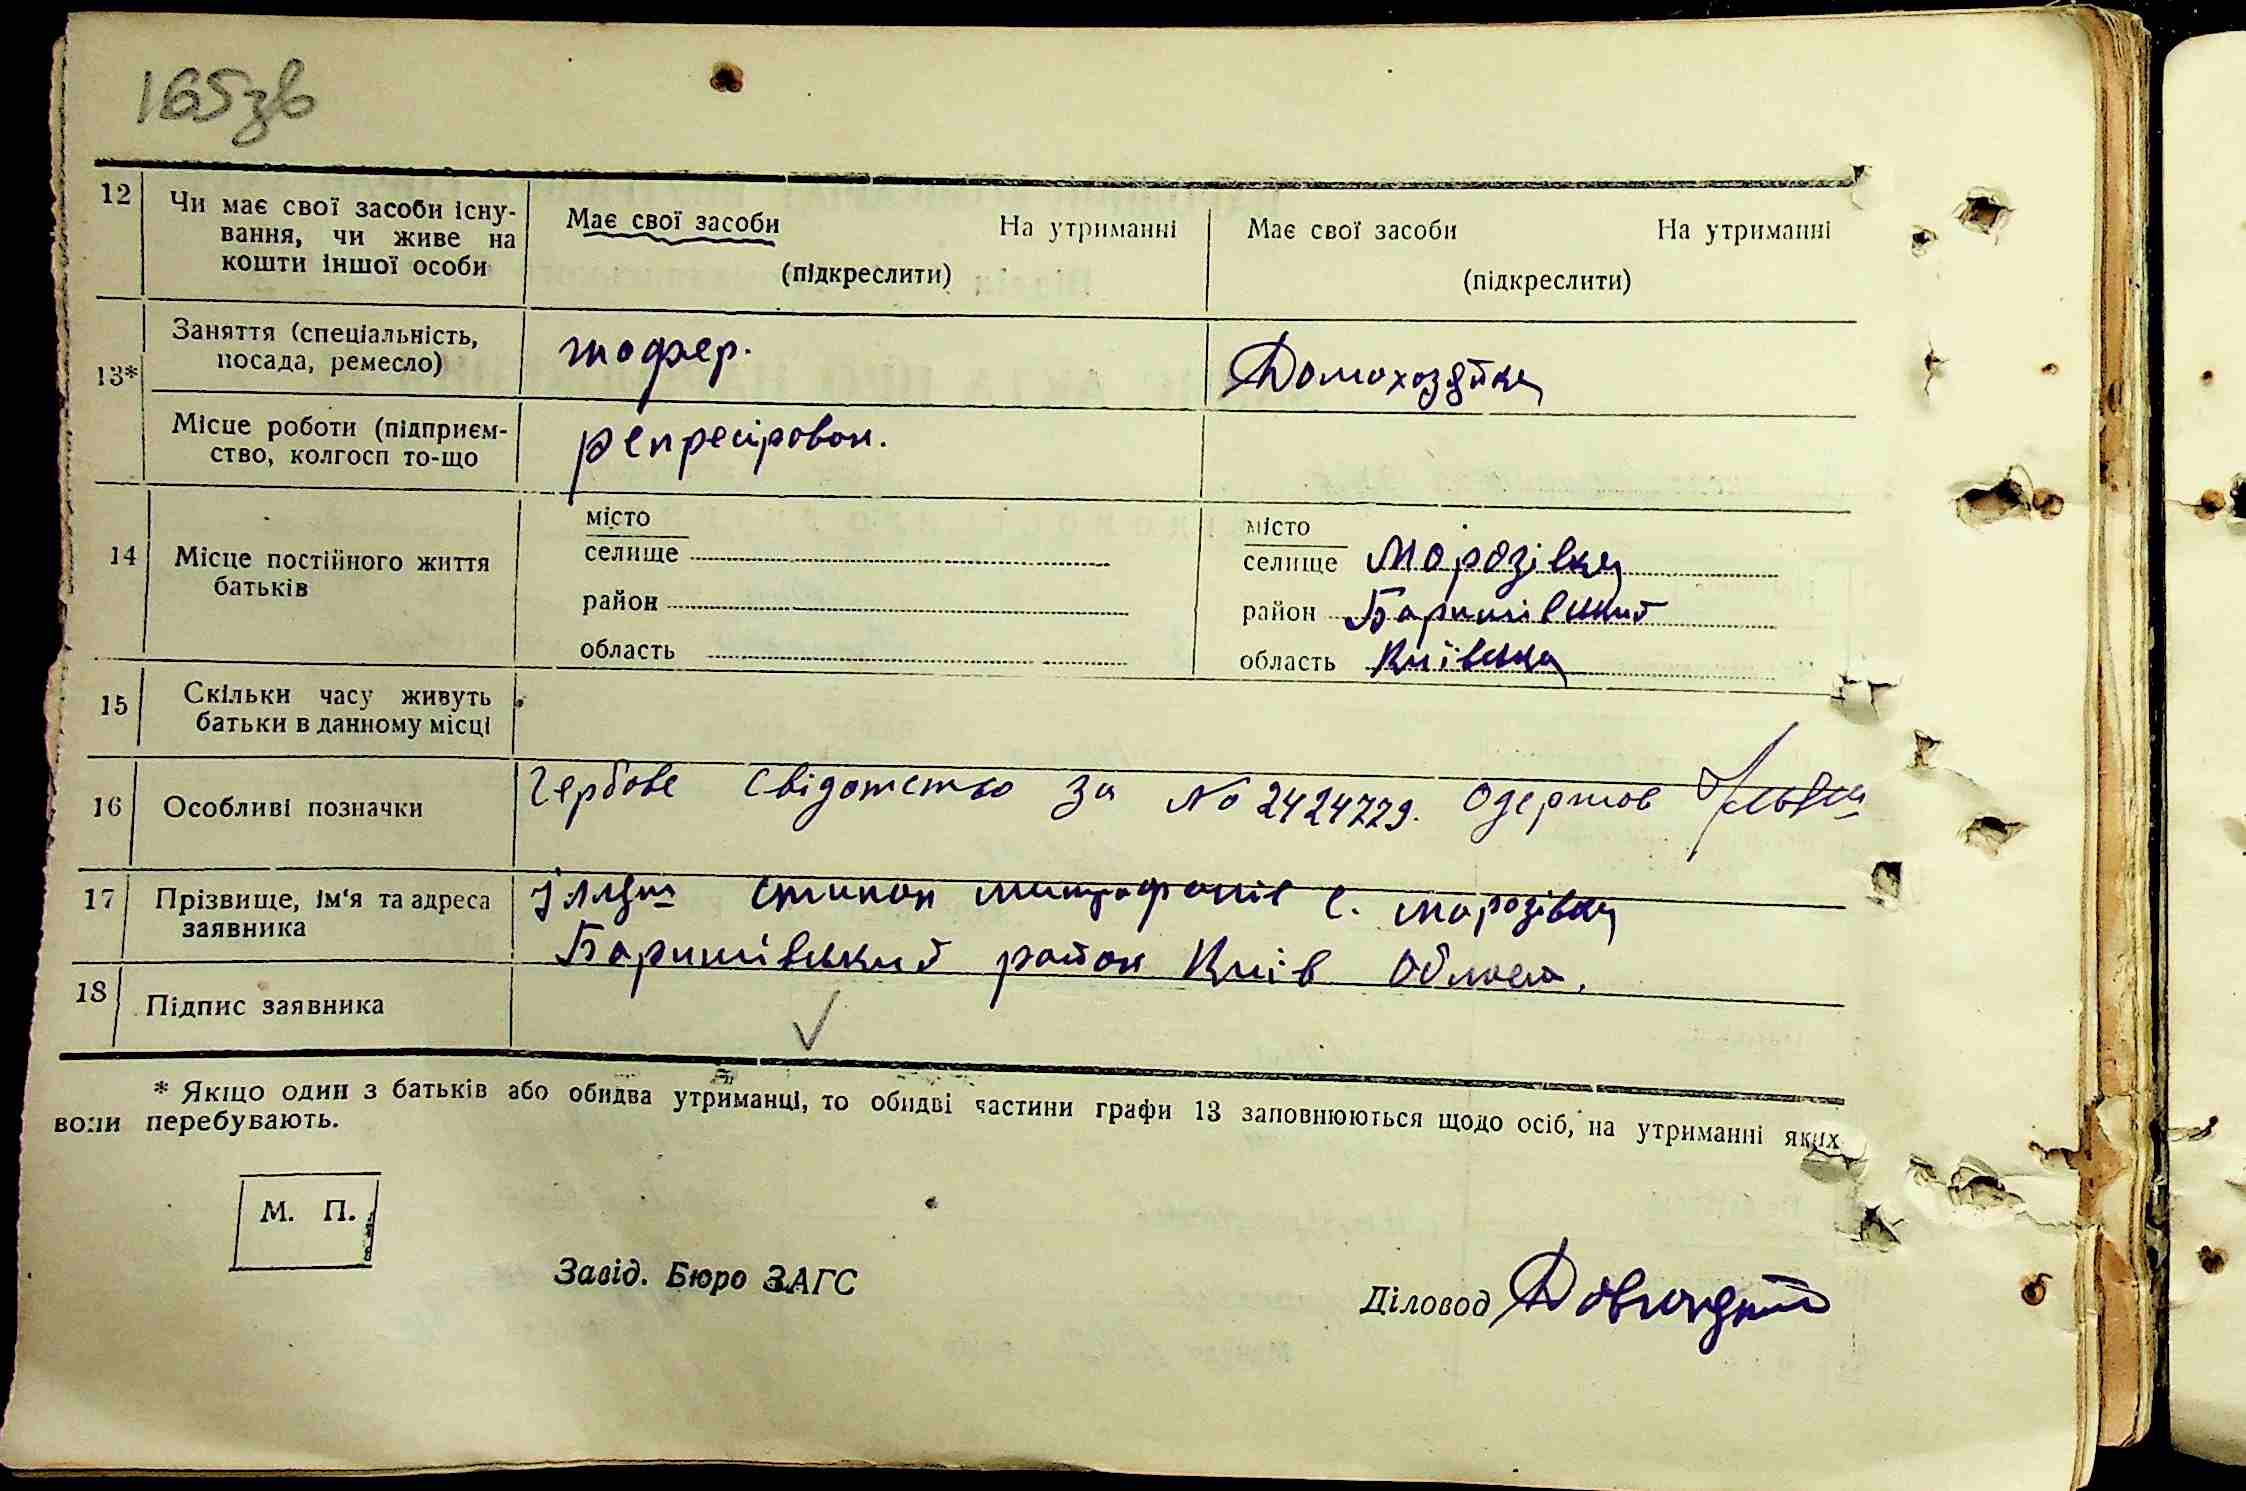 165зв
12 Чи має свої засоби існу-
вання, чи живе на
кошти іншої особи
Має свої засоби На утриманні
(підкреслити)
Має свої засоби На утриманні
(підкреслити)
13* Заняття (спеціальність,
посада, ремесло)
шофер.
Домохозяйка
Місце роботи (підприєм-
ство, колгосп то-що
репресірован.
14 Місце постійного життя
батьків
місто
селище
район
область
місто
селище Морозівка
район Баришівський
область Київська
15 Скільки часу живуть
батьки в данному місці
16 Особливі позначки
Гербове свідотство за № 2424779. Одержав
17 Прізвище, ім'я та адреса
заявника
Степан Митрофонів с. Морозівка
Баришівський район Київ Област.
18 Підпис заявника
* Якщо один з батьків або обидва утриманці, то обидві частини графи 13 заповнюються щодо осіб, на утриманні яких
вони перебувають.
М. П.
Завід. Бюро ЗАГС
Діловод